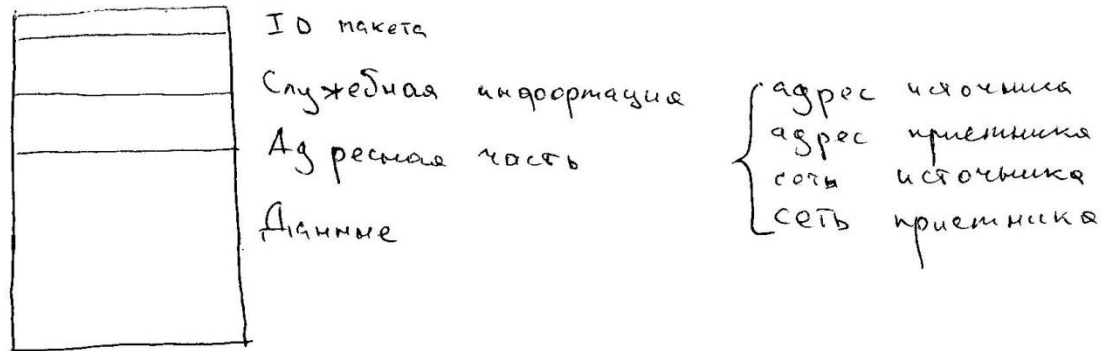 ID пакета
Служебная информация
Адресная часть
Данные
адрес источника
адрес приемника
сеть источника
сеть приемника